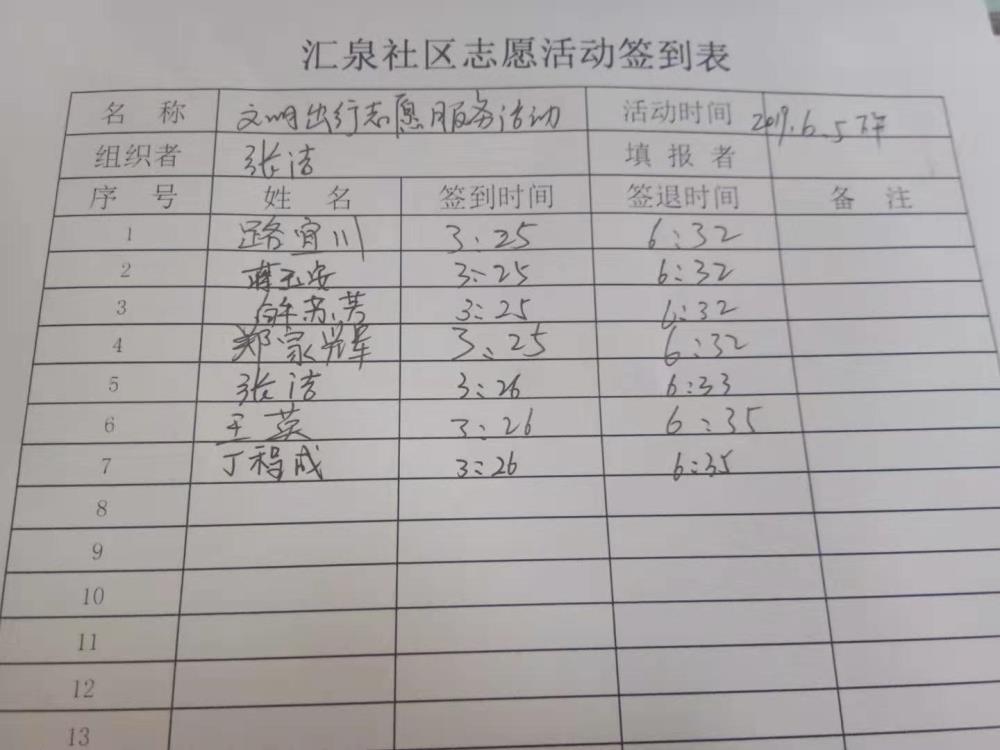 汇泉社区志愿活动签到表
名 称 文明出行志愿服务活动 活动时间 2019.6.5下午
组织者 张洁 填报者
序 号 姓 名 签到时间 签退时间 备 注
1 路宜川 3:25 6:32
2 蒋玉安 3:25 6:32
3 苏英 3:25 6:32
4 郑家辉 3:25 6:32
5 张洁 3:26 6:33
6 王英 3:26 6:35
7 丁程成 3:26 6:35
8
9
10
11
12
13